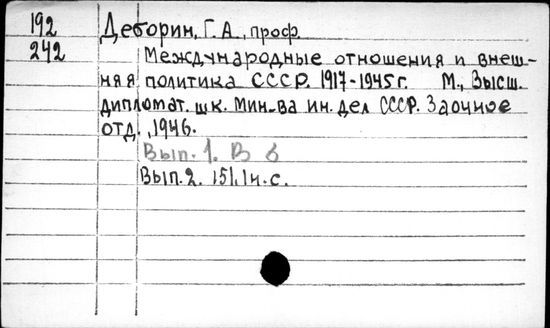 192 Деборин, Г.А., проф.
242 Международные отношения и внеш-
няя политика СССР. 1917-1945 г. М., Высш.
дипломат. шк. Мин-ва ин. дел СССР. Заочное
отд., 1946.
Вып. 1. В 6
Вып. 2. 151, 1н. с.